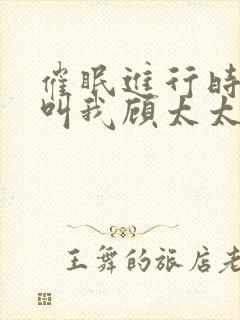 催眠進行時
叫我顾太太
王舞的旅店老